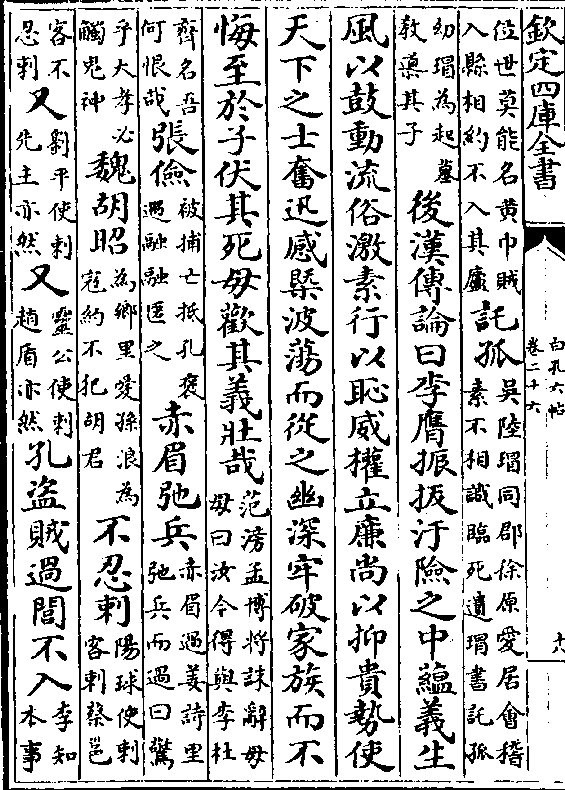 欽定四庫全書
白孔六帖
卷二十六
十六
位世莫能名黄巾賊
入縣相約不入其廬託孤吳陸瑁同郡徐原愛居會稽
素不相識臨死遺瑁書託孤
幼瑁為起墓
教導其子後漢傳論曰李膺振拔汙險之中藴義生
風以鼓動流俗激素行以恥威權立廉尚以抑貴勢使
天下之士奮迅感槩波蕩而從之幽深牢破家族而不
悔至於子伏其死母歡其義壯哉范滂孟博將誅辭母
母曰汝今得與李杜
齊名吾
何恨哉張儉被捕亡抵孔褒
遇融融匿之赤眉弛兵赤眉過姜詩里
弛兵而過曰驚
乎大孝必
觸鬼神魏胡昭為鄉里愛孫浪為
寇約不犯胡君不忍刺陽球使刺
客刺蔡邕
客不
忍刺又劉平使刺
先主亦然又靈公使刺
趙盾亦然孔盗賊過閭不入李知
本事